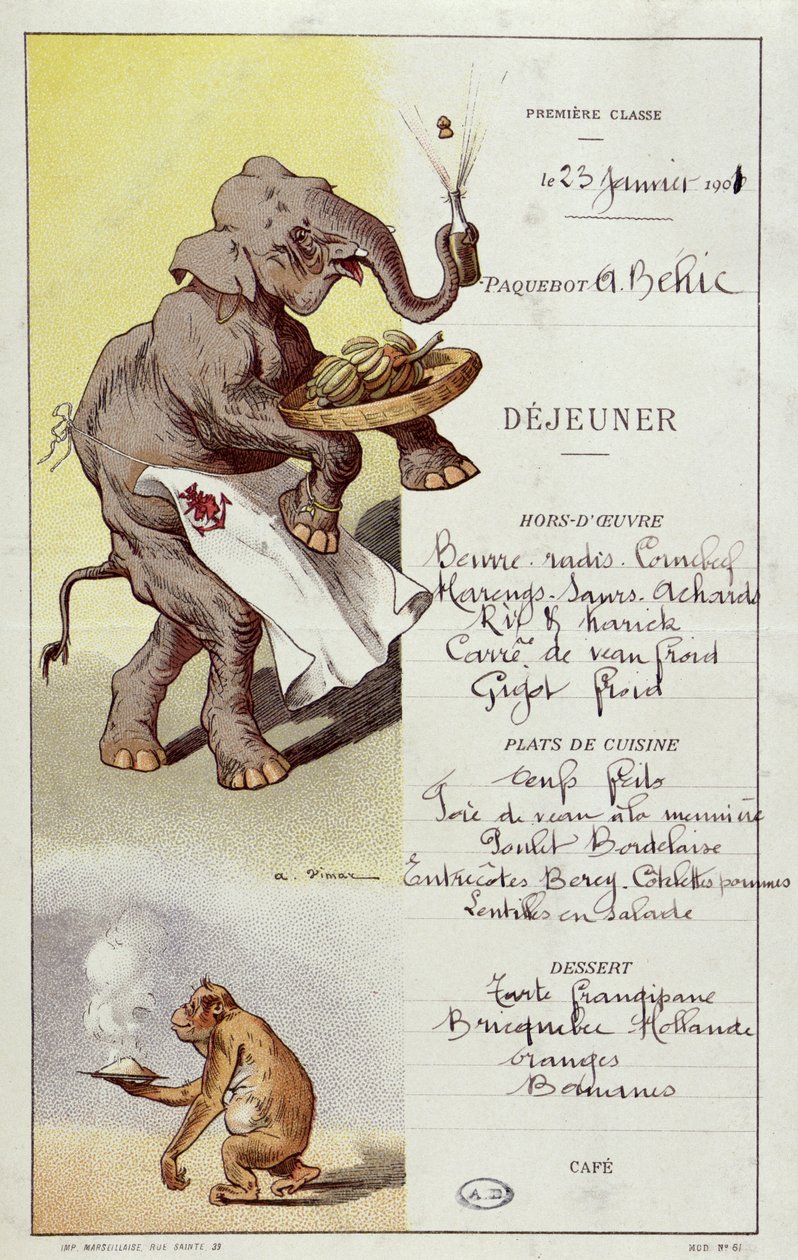 PREMIÈRE CLASSE
le 23 Janvier 1901
PAQUEBOT A. Béhic
DÉJEUNER
HORS-D'ŒUVRE
Beurre. radis. Cornebeef
Harengs-Saurs. Achards
Riz & Karick
Carré de veau froid
Gigot froid
PLATS DE CUISINE
Oeufs frits
Foie de veau à la meunière
Poulet Bordelaise
Entrecôtes Bercy. Côtelettes pommes
Lentilles en salade
a. Vimar
DESSERT
Tarte frangipane
Bricquebec Hollande
Oranges
Bananes
CAFÉ
A.D
IMP. MARSEILLAISE, RUE SAINTE, 39
MOD. Nº 61